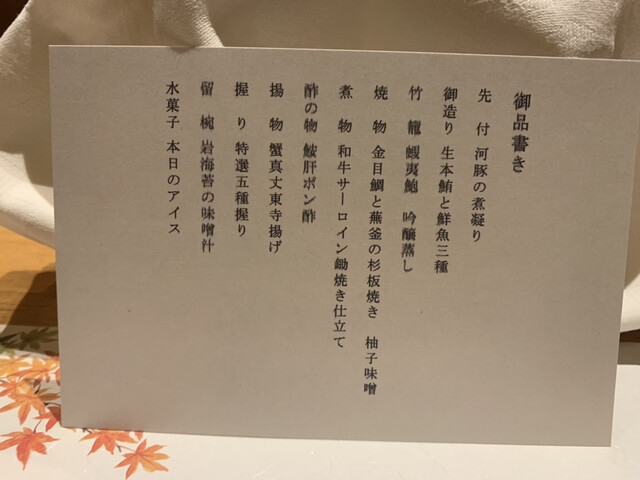 御品書き
先付 河豚の煮凝り
御造り 生本鮪と鮮魚三種
竹籠 蝦夷鮑 吟醸蒸し
焼物 金目鯛と蕪釜の杉板焼き 柚子味噌
煮物 和牛サーロイン鋤焼き仕立て
酢の物 鮟肝ポン酢
揚物 蟹真丈東寺揚げ
握り 特選五種握り
留椀 岩海苔の味噌汁
水菓子 本日のアイス